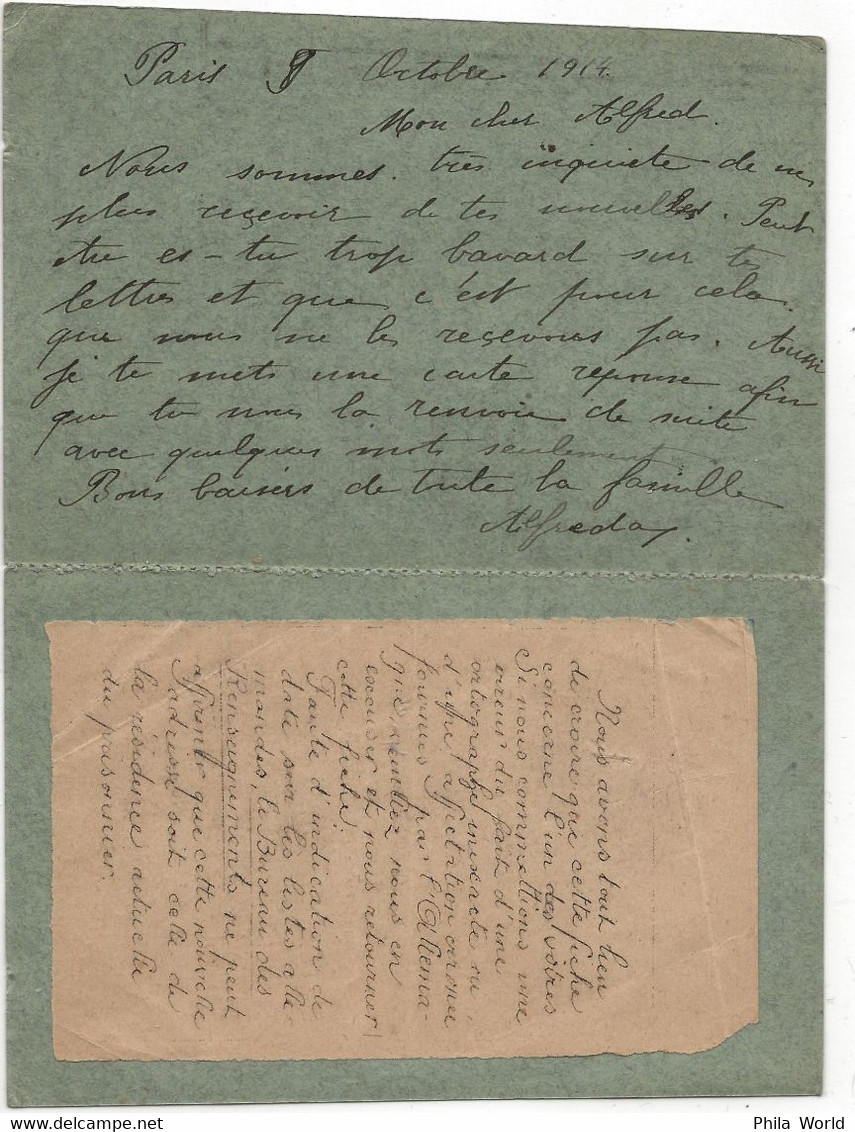 Paris 8 Octobre 1914.
Mon cher Alfred.
Nous sommes. très inquiete de ne
plus reçevoir de tes nouvelles. Peut
être es-tu trop bavard sur te
lettres et que c'est pour cela.
que nous ne les reçevons pas. Aussi
je te mets une carte reponse afin
que tu nous la renvoie de suite
avec quelques mots seulement
Bons baisers de toute la famille
Alfreda
Nous avons tout lieu
de croire que cette fiche
concerne l'un des vôtres
Si nous commettions une
erreur du fait d'une
ortographe inexacte ou
d'une affectation erronée
fournies par l'Allema-
gne, veuillez nous en
excuser et nous retourner
cette fiche.
Faute d'indication de
date sur les listes alle
mandes, le Bureau des
Renseignements ne peut
affirmer que cette nouvelle
adresse soit celle de
la résidence actuelle
du prisonnier.
Phila World